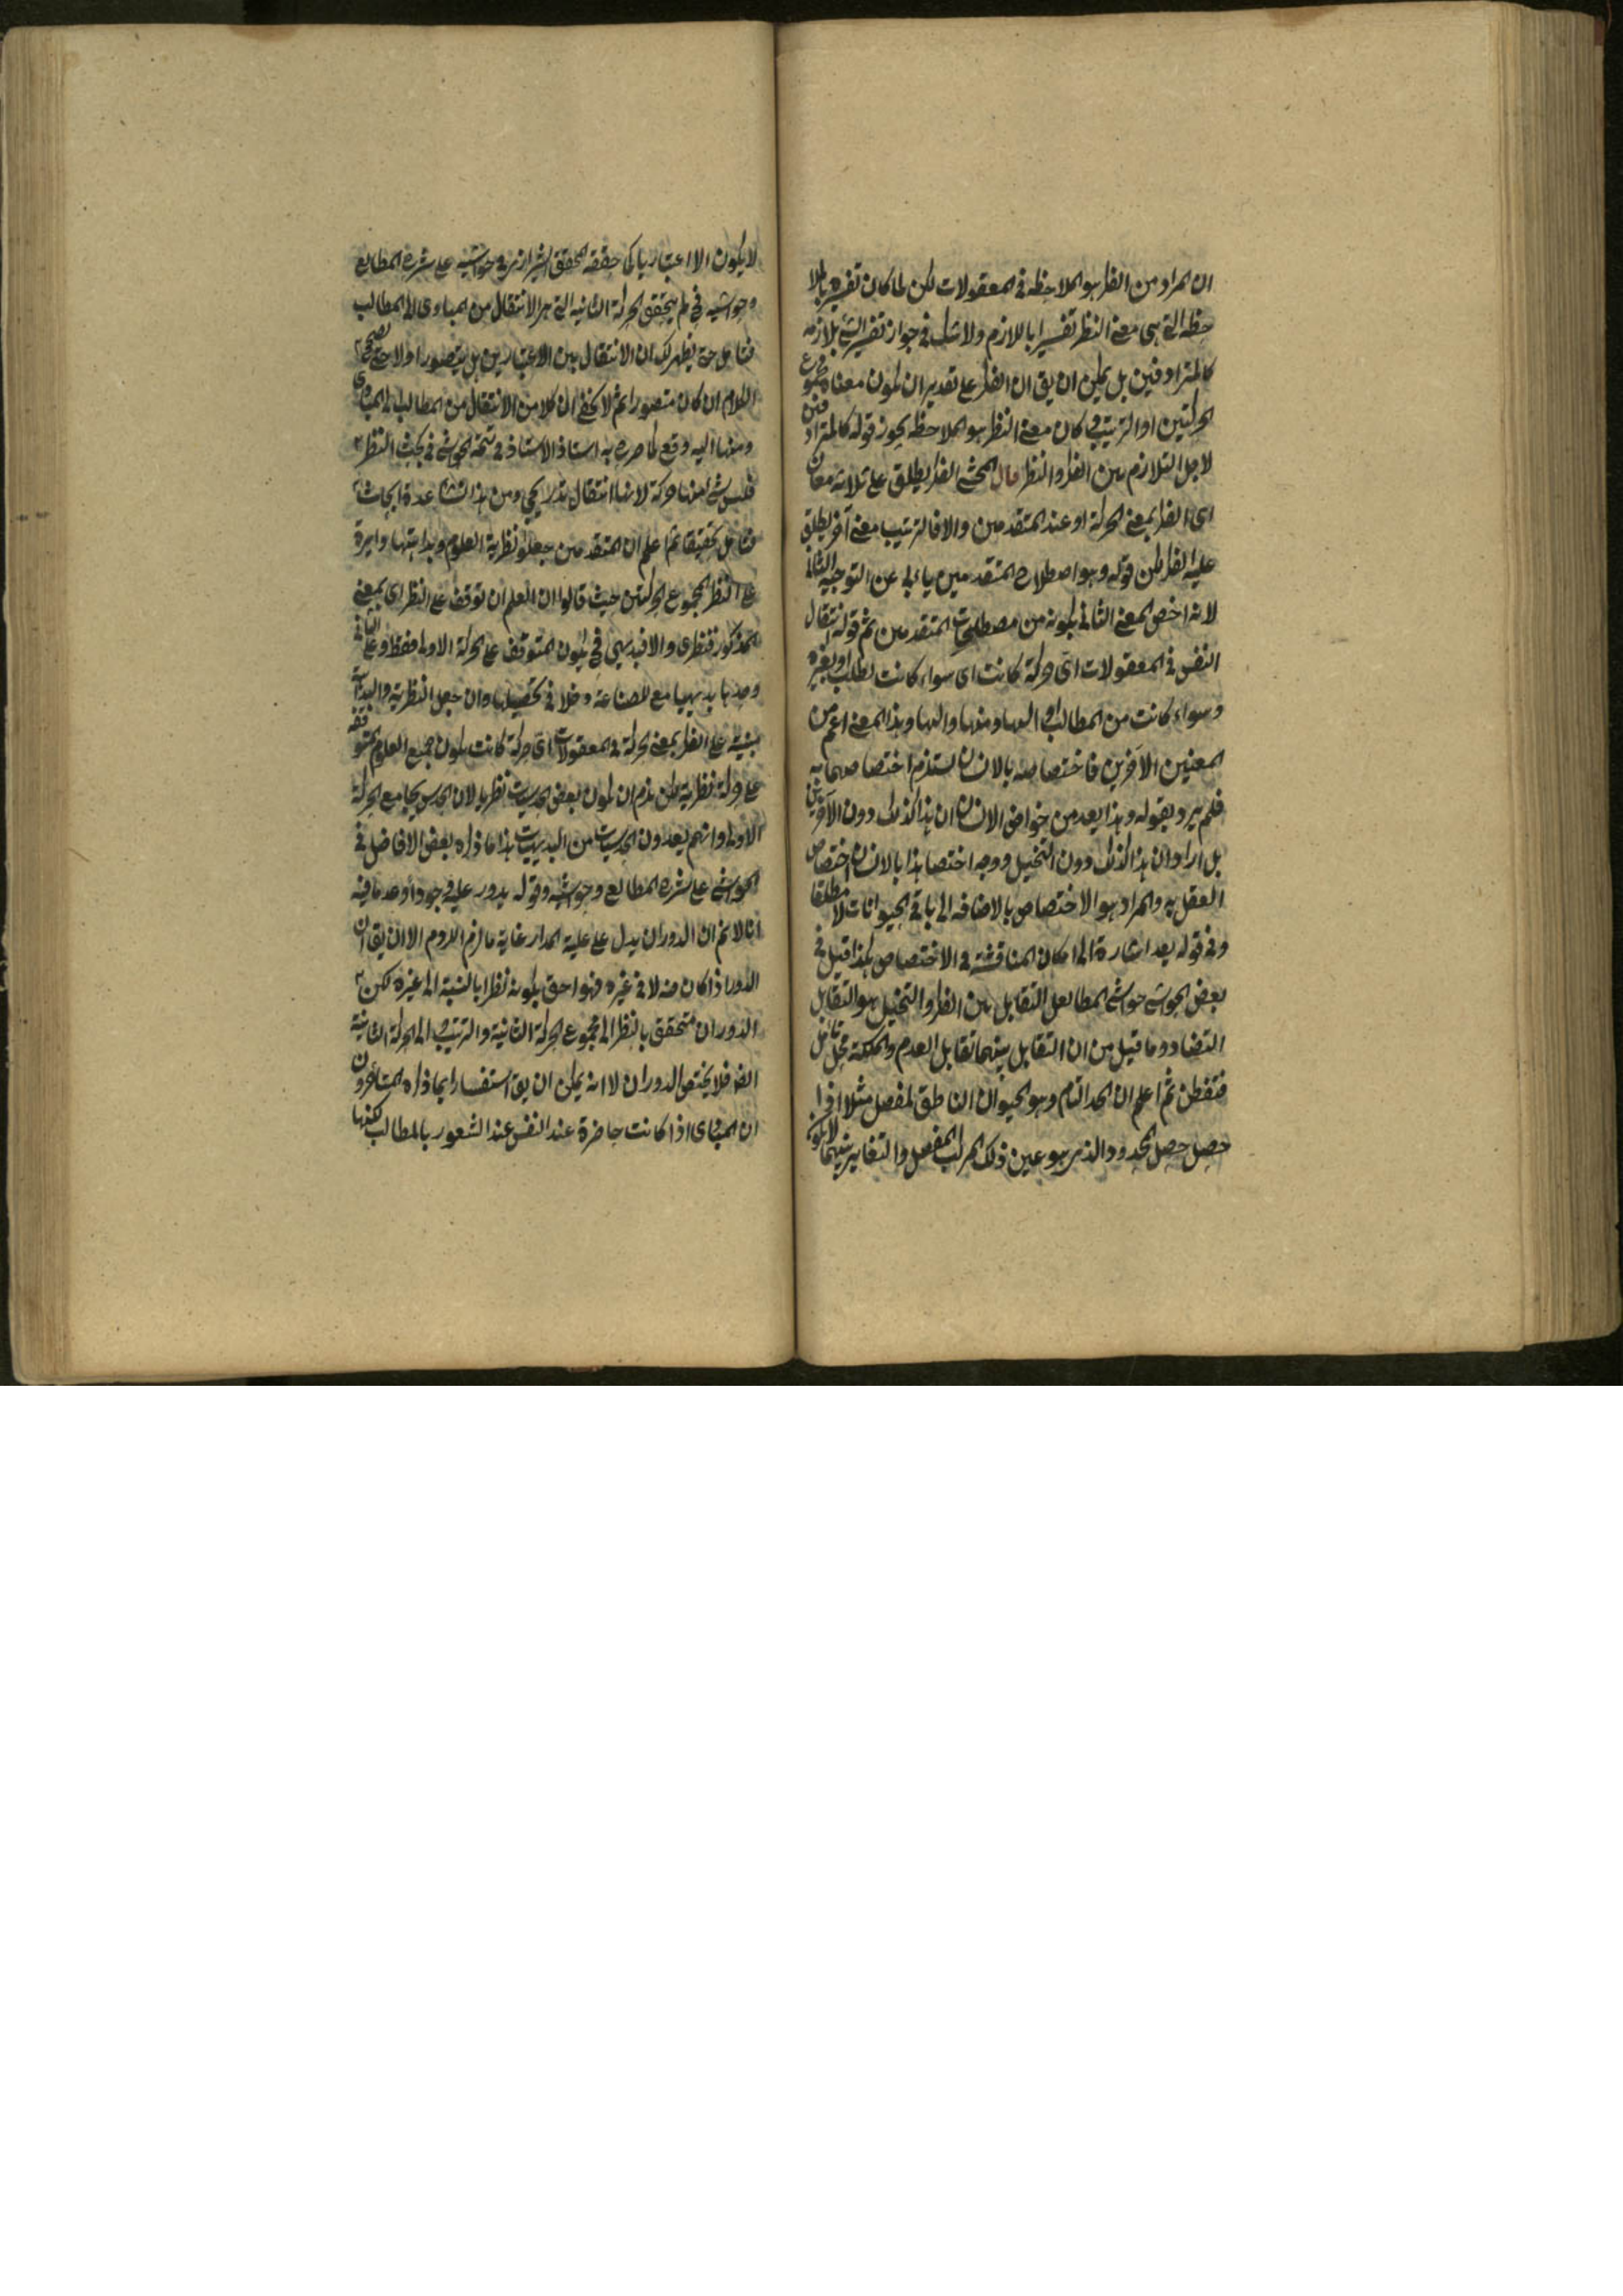 ان المراد من الفكر هو الملاحظه فى المعقولات لكن لما كان تفسيره بالملا
حظه التى هى معنى النظر تفسيرا باللازم ولا شك فى جواز تفسير الشئ بلازمه
كالمترادفين بل يمكن ان يق ان الفكر على تقدير ان يكون معناه مجموع
الحركتين او الترتيب وكان معنى النظر هو الملاحظه يجوز قوله كالمترادفين
لاجل التلازم بين الفكر والنظر قال المحشى الفكر يطلق على ثلاثة معان
اى الفكر بمعنى الحركة او عند المتقدمين والا فالترتيب معنى آخر يطلق
عليه الفكر لكن قوله وهو اصطلاح المتقدمين يأبى عن التوجيه الثانى
لانه اخص المعنى الثانى بكونه من مصطلحات المتقدمين ثم قوله انتقال
النفس فى المعقولات اى حركة كانت اى سواء كانت لطلب او بغيره
وسواء كانت من المطالب او اليها ومنها واليها وهذا المعنى اعم من
المعنيين الآخرين فاختصاصه بالانسان يستلزم اختصاصهما به
فلم يرد بقوله وهذا يعد من خواص الانسان ان هذا كذلك دون الآخرين
بل اراد ان هذا كذلك دون التخيل ووجه اختصا هذا بالانسان اختصاص
العقل به والمراد هو الاختصاص بالاضافه الى باقى الحيوانات لا مطلقا
وفى قوله يعد اشارة الى امكان المناقشة فى الاختصاص هكذا قيل فى
بعض الحواشى حواشى المطالع التقابل بين الفكر والتخيل هو التقابل
التضاد وما قيل من ان التقابل بينهما تقابل العدم والملكة محل تأمل
فتفطن ثم اعلم ان الحد التام وهو الحيوان الناطق المفصل مثلا اذا
حصل حصل المحدود الذى هو عين ذلك المركب المفصل والتغاير بينهما لا يكون
لا يكون الا اعتباريا كما حققه المحقق الشيرازى فى حواشيه على شرح المطالع
وحواشيه فح لم يتحقق الحركة الثانيه التى هى الانتقال من المبادى الى المطالب
فتامل حتى يظهر لك ان الانتقال بين الاعتبارين هل يتصور اولا حتى يصح
الكلام ان كان متصورا ثم لا يخفى ان كلا من الانتقال من المطالب الى المبادى
ومنها اليه دفع كما صرح به استاذ الاستاذ فى تتمة الحواشى فى بحث النظر
فليس شئ منها حركة لانها انتقال تدريجى ومن هذا تنشأ عدة ابحاث
فتامل تحقيقا ثم اعلم ان المتقدمين جعلوا نظرية العلوم وبداهتها دايرة
على النظر المجموع الحركتين حيث قالوا ان العلم ان توقف على النظر اى بمعنى
المذكور فنظرى والا فبديهى فح يكون المتوقف على الحركة الاولى فقط وعلى الثانى
وحدها بديهيا مع للصناعة دخلا فى تحصيلها وان جعل النظرية والبداهة
مبنية على الفكر بمعنى الحركة فى المعقولات اى حركة كانت يكون جميع العلوم المتوقفه
على حركة نظرية لكن يلزم ان يكون بعض الحدسيات نظريا لان الحدس يجامع الحركة
الاولى وانهم يعدون الحدسيات من البديهيات هذا ما ذكره بعض الافاضل فى
الحواشى على شرح المطالع وحواشيه وقوله يدور عليه وجودا وعدما فيه
انا لا نم ان الدوران يدل على علية المدار غاية ما لزم اللزوم الا ان يق ان
الدور اذا كان منه لا فى غيره فهو احق بكونه نظرا بالنسبة الى غيره لكن
الدوران متحقق بالنظر الى مجموع الحركة الثانية والترتيب والى الحركة الثانية
ايضا فلا يختص الدوران لا انه يمكن ان يق استفسارا بما ذكره المتأخرون
ان المبادى اذا كانت حاضرة عند النفس عند الشعور بالمطالب لكنها